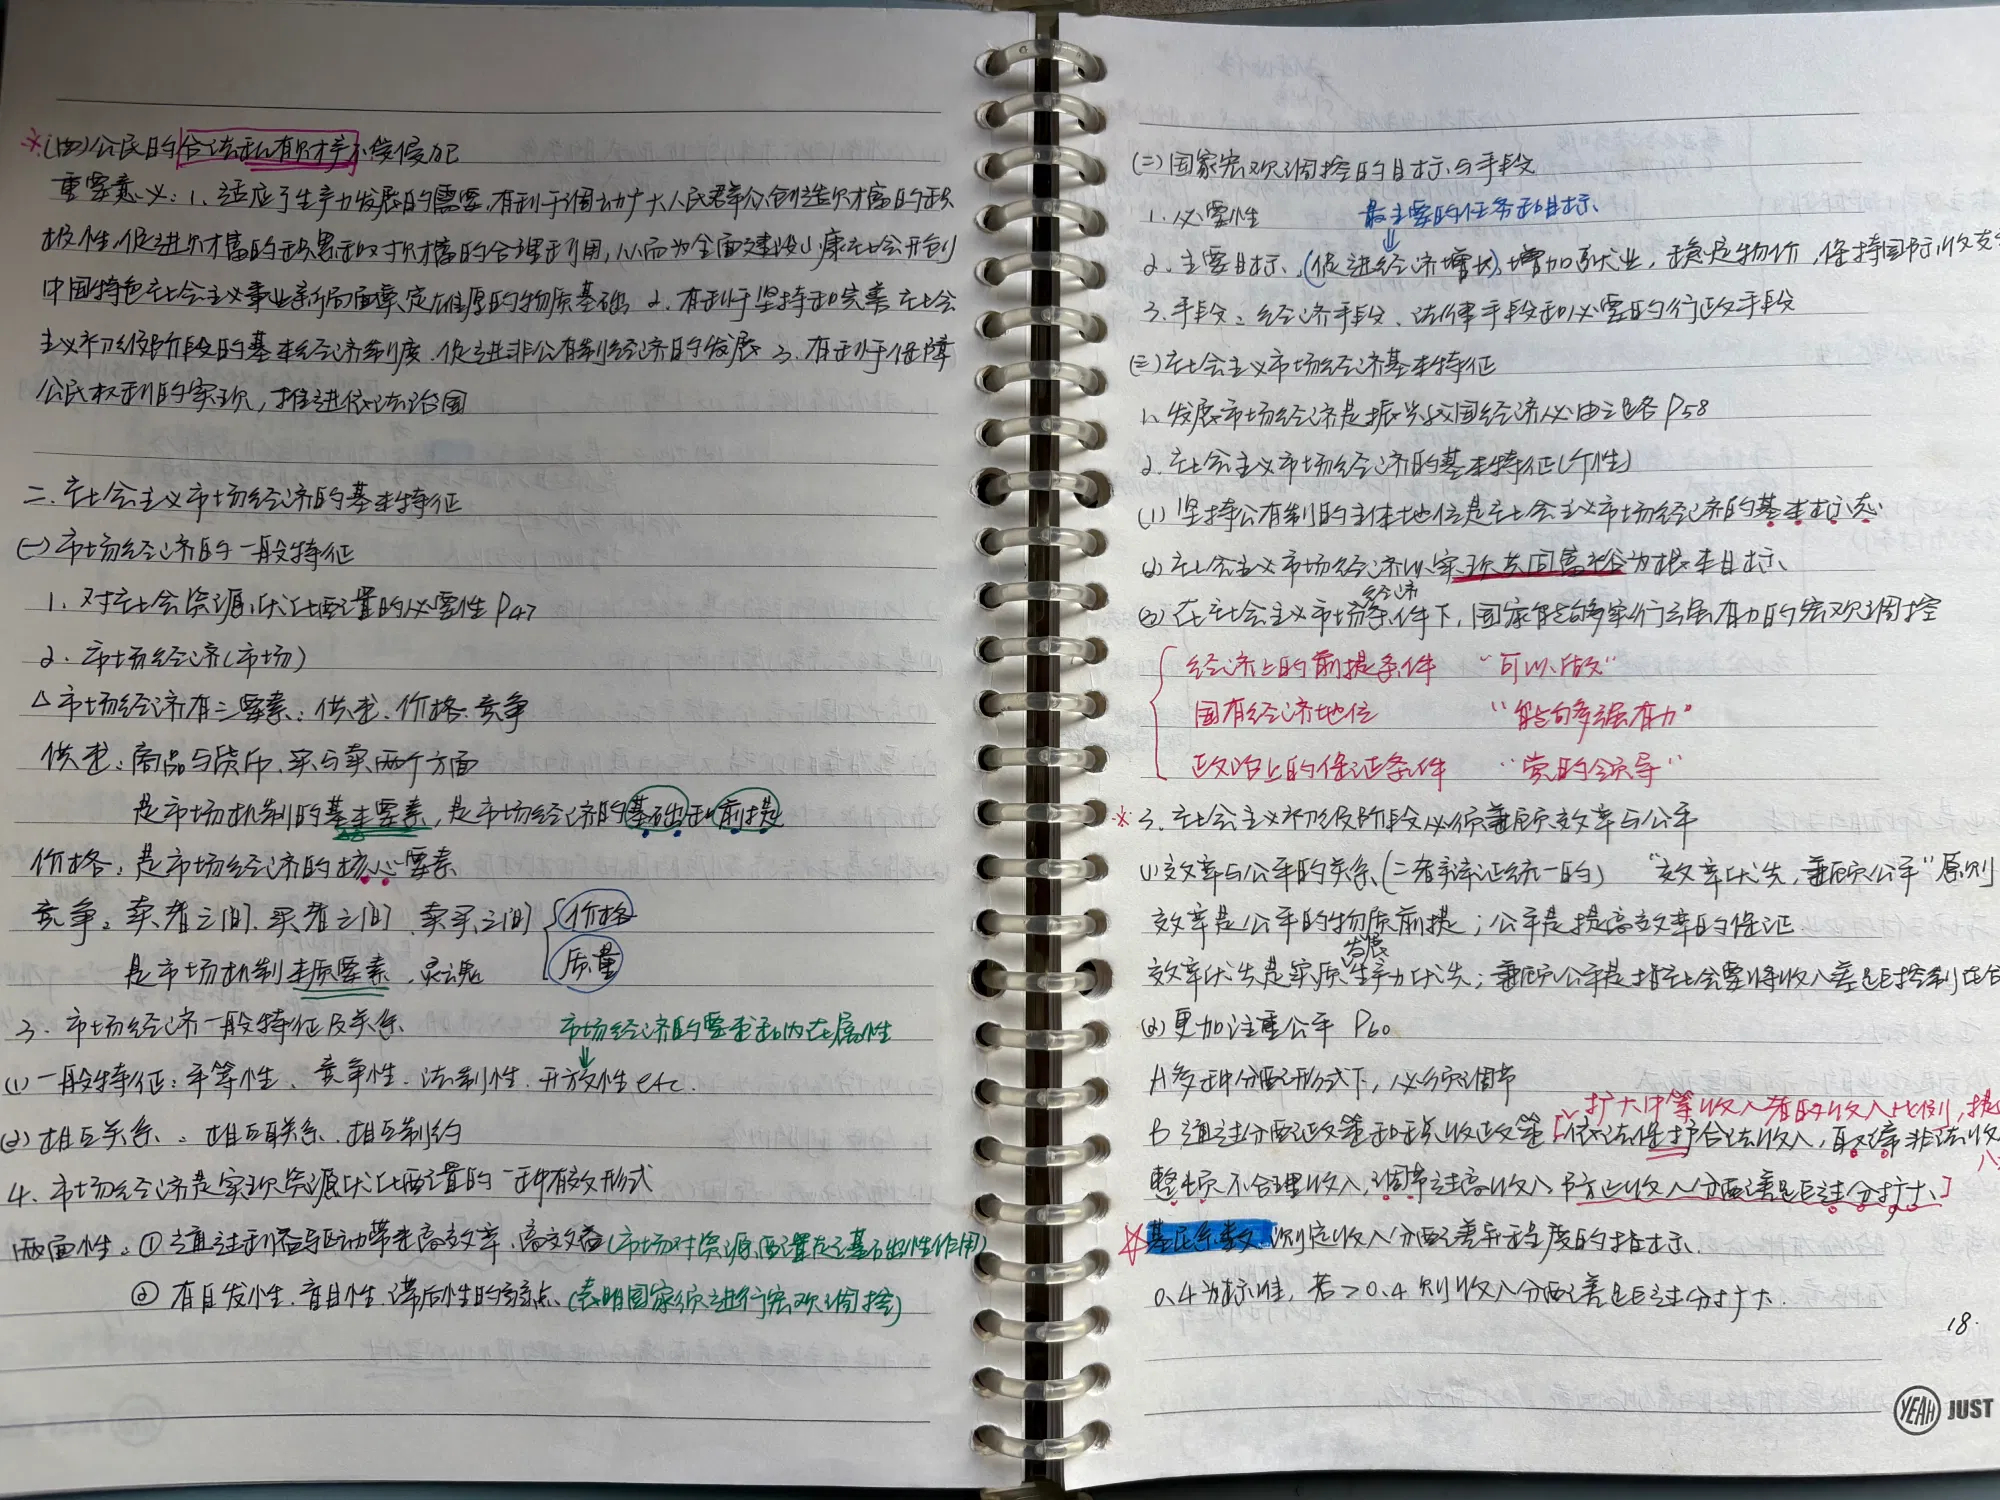 ※(四)公民的合法私有财产不受侵犯
重要意义:1、适应了生产力发展的需要,有利于调动广大人民群众创造财富的积
极性,促进财富的积累和对财富的合理利用,从而为全面建设小康社会开创
中国特色社会主义事业新局面奠定雄厚的物质基础 2.有利于坚持和完善社会
主义初级阶段的基本经济制度.促进非公有制经济的发展 3.有利于保障
公民权利的实现,推进依法治国
二.社会主义市场经济的基本特征
(一)市场经济的一般特征
1、对社会资源优化配置的必要性P47
2.市场经济(市场)
△市场经济有三要素:供求.价格.竞争
供求:商品与货币.买与卖两个方面
是市场机制的基本要素,是市场经济的基础和前提
价格:是市场经济的核心要素
竞争:卖者之间.买者之间.卖买之间{价格
质量
是市场机制本质要素.灵魂
3.市场经济一般特征及关系
市场经济的要求和内在属性
(1)一般特征:平等性、竞争性.法制性.开放性etc.
(2)相互关系:相互联系.相互制约
4.市场经济是实现资源优化配置的一种有效形式
两面性:①通过利益驱动带来高效率.高效益(市场对资源配置起基础性作用)
②有自发性.盲目性.滞后性的弱点.(表明国家须进行宏观调控)
(二)国家宏观调控的目标与手段
1.必要性
最主要的任务和目标
2.主要目标.(促进经济增长),增加就业,稳定物价,保持国际收支
3.手段:经济手段、法律手段和必要的行政手段
(三)社会主义市场经济基本特征
1、发展市场经济是振兴我国经济必由之路P58
2.社会主义市场经济的基本特征(个性)
(1)坚持公有制的主体地位是社会主义市场经济的基本标志
(2)社会主义市场经济以实现共同富裕为根本目标
(3)在社会主义市场经济条件下,国家能够实行强有力的宏观调控
经济上的前提条件 “可以做”
国有经济地位 “能够强有力”
政治上的保证条件 “党的领导”
※3.社会主义初级阶段必须兼顾效率与公平
(1)效率与公平的关系(二者辩证统一的) “效率优先,兼顾公平”原则
效率是公平的物质前提;公平是提高效率的保证.
效率优先是实质发展生产力优先;兼顾公平是指社会要将收入差距控制在合
(2)更加注重公平 P60
A多种分配形式下,必须调节
扩大中等收入者的收入比例,提
B通过分配政策和税收政策[依法保护合法收入,取缔非法收
整顿不合理收入,调节过高收入.防止收入分配差距过分扩大.]
☆基尼系数:测定收入分配差异程度的指标.
0.4为标准,若>0.4则收入分配差距过分扩大.
18.
YEAH JUST